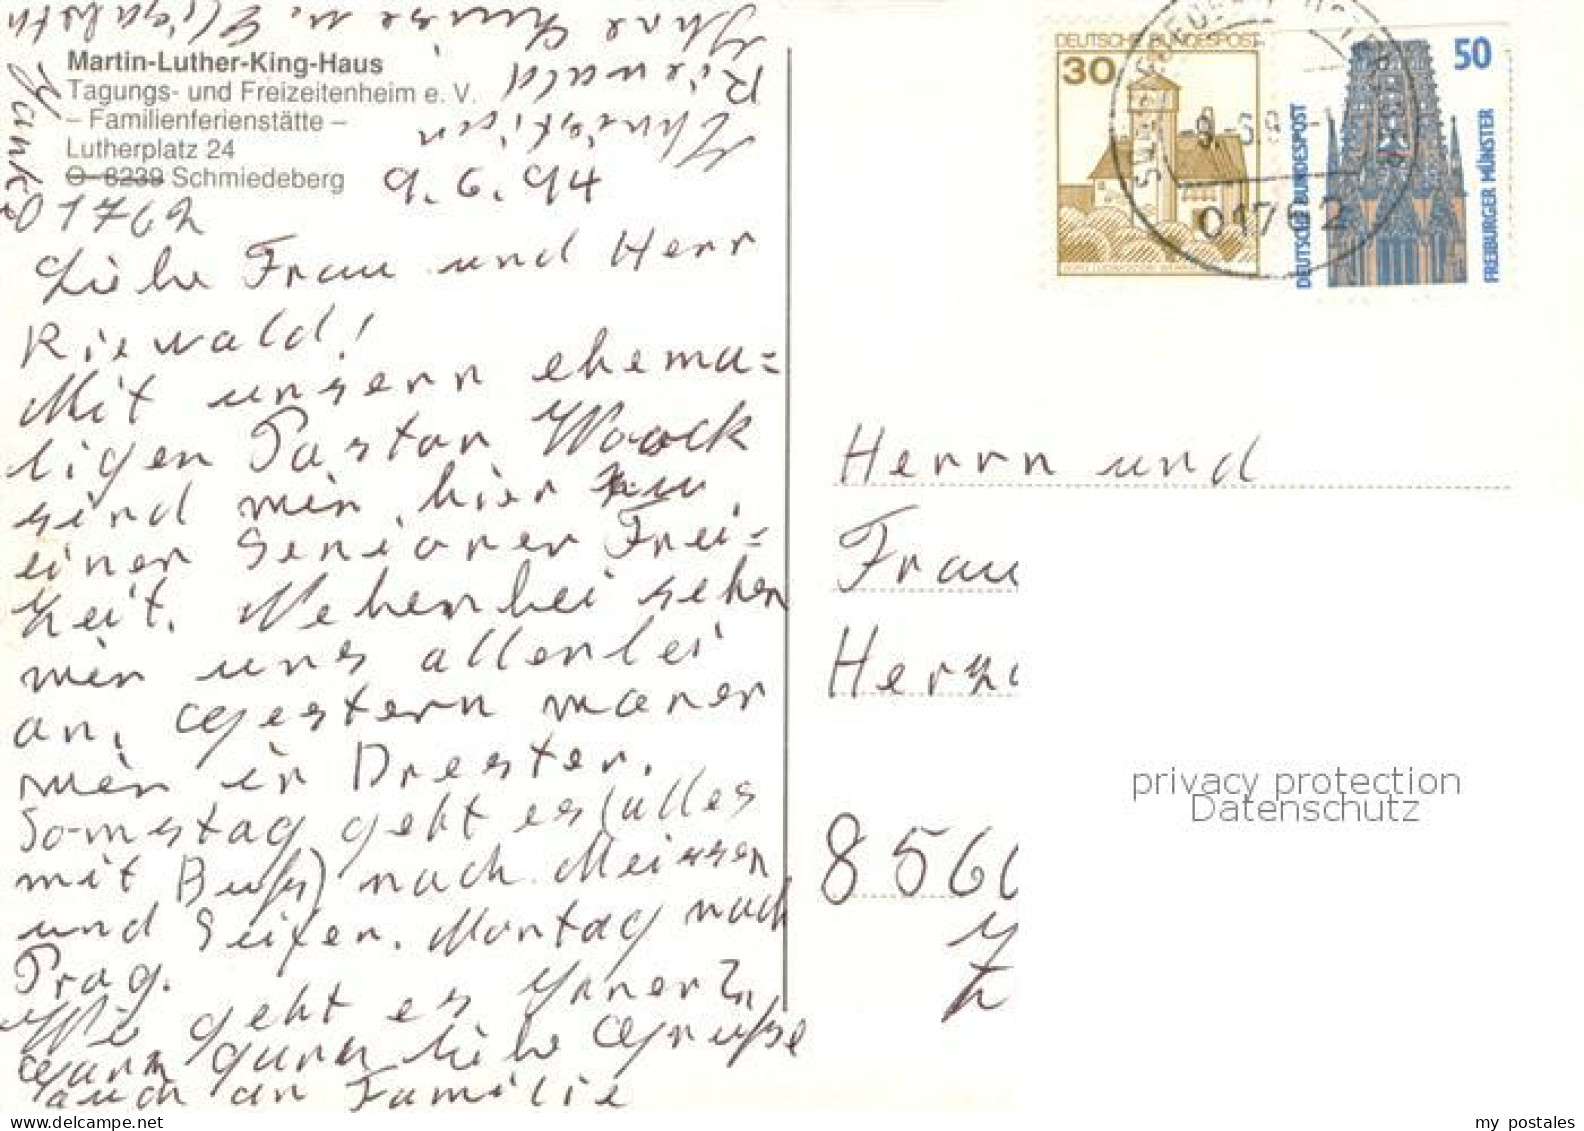 Martin-Luther-King-Haus
Tagungs- und Freizeitenheim e. V.
– Familienferienstätte –
Lutherplatz 24
O-8239 Schmiedeberg
01762
9.6.94
Liebe Frau und Herr
Riewald!
Mit unsern ehema=
ligen Pastor
sind wir hier zu
einer Senioren Frei=
zeit. Nebenbei sehen
wir uns allerlei
an. Gestern waren
wir in Dresten.
Somstag geht es (alles
mit Buß) nach Meissen
und Seifen. Montag nach
Prag.
Wie geht es Ihnen?
Ganz ganz liebe Grüße
auch an Familie
Christian
Riewald
Ihre Luise u. Elisabeth
Janke
DEUTSCHE BUNDESPOST
30
50
DEUTSCHE BUNDESPOST
FREIBURGER MÜNSTER
01762
Herrn und
Frau
8566
privacy protection
Datenschutz
www.delcampe.net
my postales